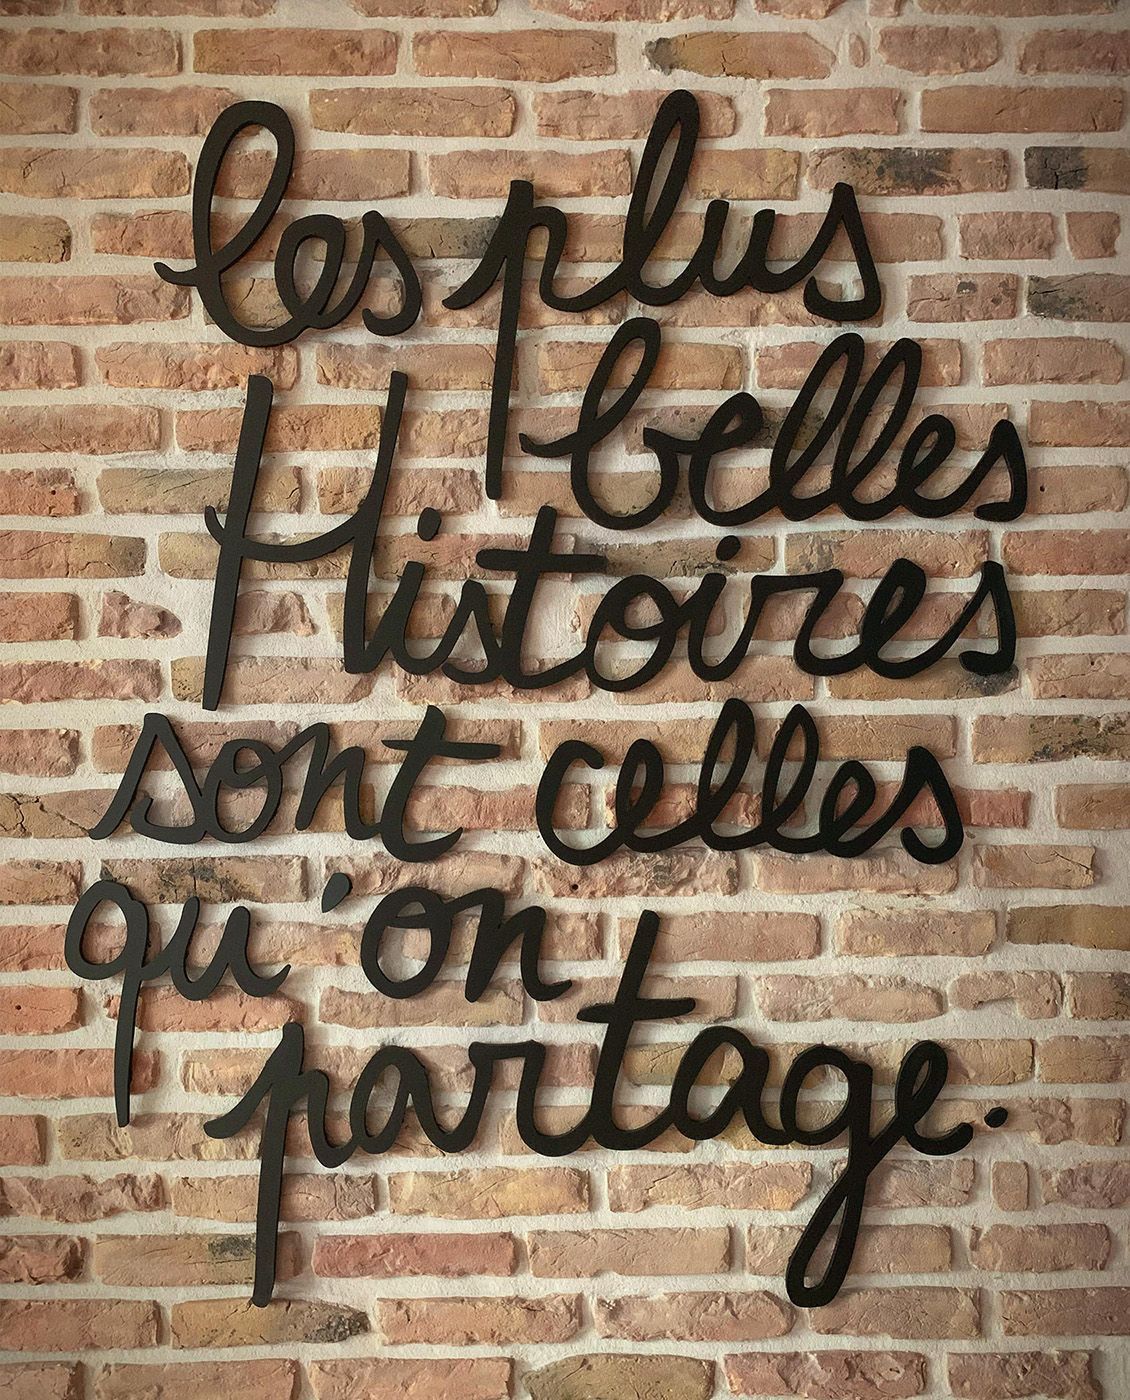 les plus
belles
Histoires
sont celles
qu'on
partage.